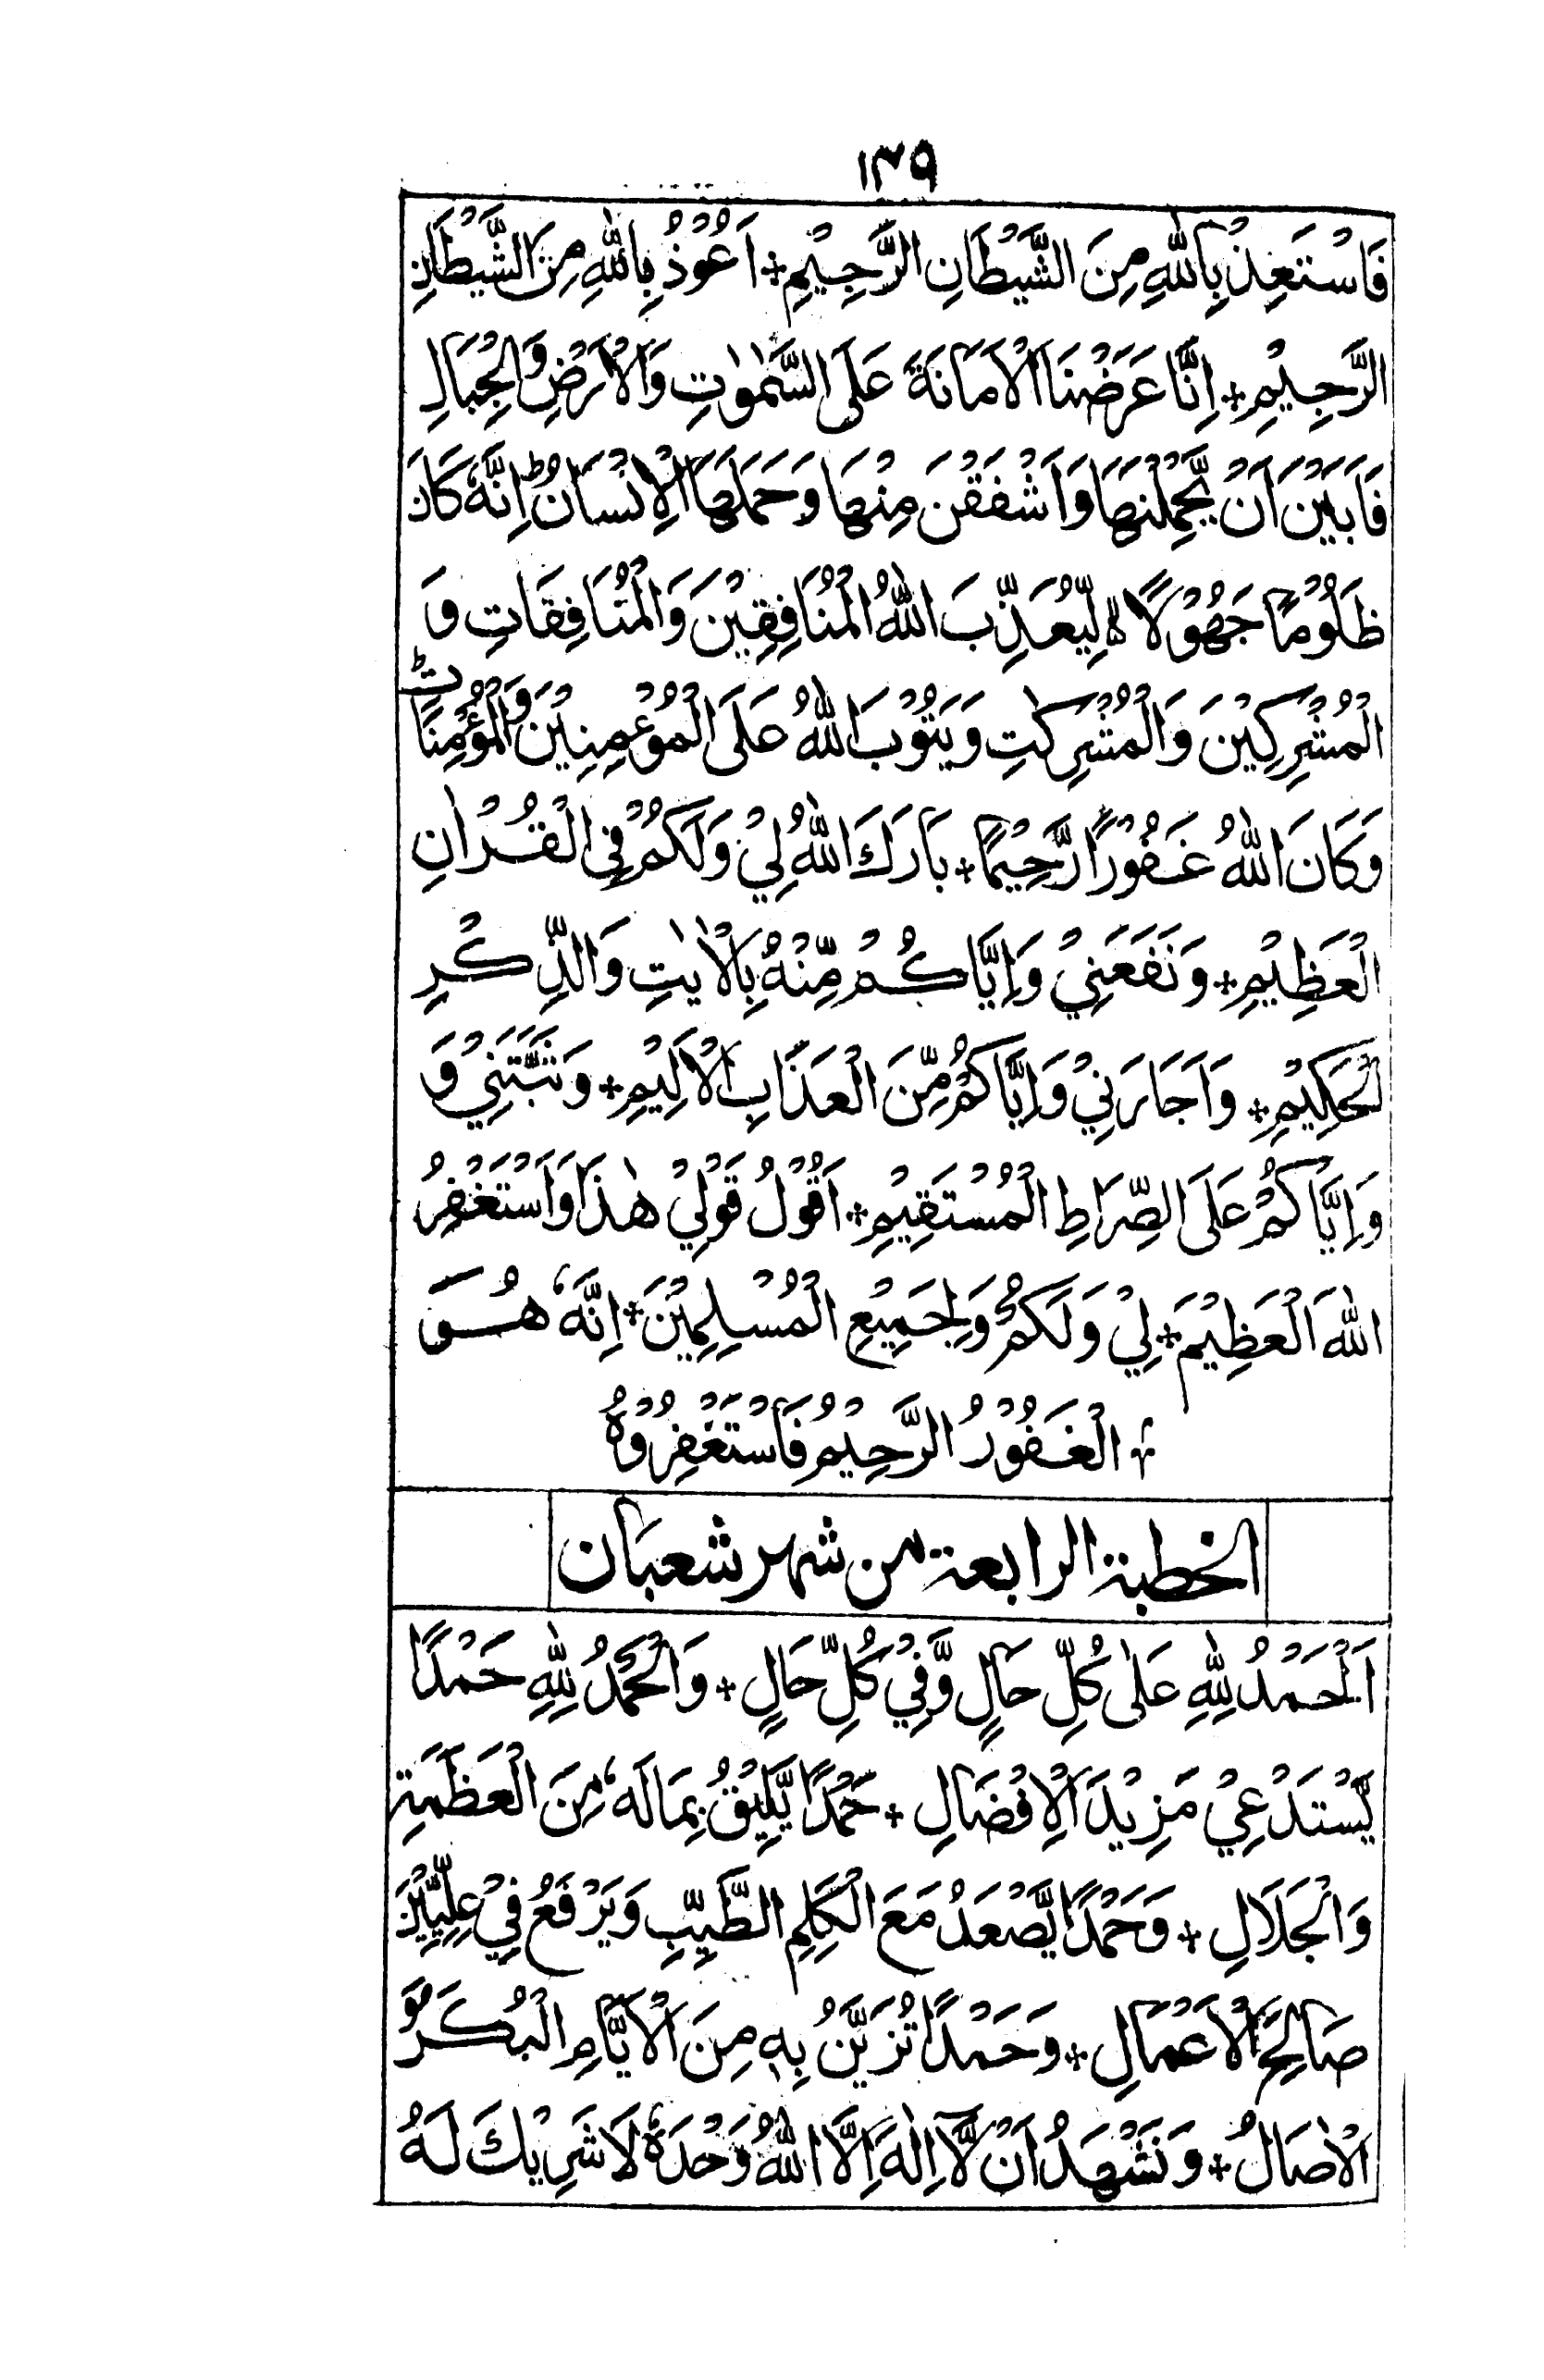 ١٣٩
فَاسْتَعِذْ بِاللّٰهِ مِنَ الشَّيْطَانِ الرَّجِيْمِ + اَعُوْذُ بِاللّٰهِ مِنَ الشَّيْطَانِ
الرَّجِيْمِ + اِنَّا عَرَضْنَا الْاَمَانَةَ عَلَى السَّمٰوٰتِ وَالْاَرْضِ وَالْجِبَالِ
فَاَبَيْنَ اَنْ يَّحْمِلْنَهَا وَاَشْفَقْنَ مِنْهَا وَحَمَلَهَا الْاِنْسَانُ ؕ اِنَّهٗ كَانَ
ظَلُوْمًا جَهُوْلًا ۙ لِّيُعَذِّبَ اللّٰهُ الْمُنَافِقِيْنَ وَالْمُنَافِقَاتِ وَ
الْمُشْرِكِيْنَ وَالْمُشْرِكٰتِ وَيَتُوْبَ اللّٰهُ عَلَى الْمُؤْمِنِيْنَ وَالْمُؤْمِنَاتِ ؕ
وَكَانَ اللّٰهُ غَفُوْرًا رَّحِيْمًا + بَارَكَ اللّٰهُ لِيْ وَلَكُمْ فِى الْقُرْاٰنِ
الْعَظِيْمِ + وَنَفَعَنِيْ وَاِيَّاكُمْ مِّنْهُ بِالْاٰيٰتِ وَالذِّكْرِ
الْحَكِيْمِ + وَاَجَارَنِيْ وَاِيَّاكُمْ مِّنَ الْعَذَابِ الْاَلِيْمِ + وَثَبَّتَنِيْ وَ
وَاِيَّاكُمْ عَلَى الصِّرَاطِ الْمُسْتَقِيْمِ + اَقُوْلُ قَوْلِيْ هٰذَا وَاَسْتَغْفِرُ
اللّٰهَ الْعَظِيْمَ + لِيْ وَلَكُمْ وَلِجَمِيْعِ الْمُسْلِمِيْنَ + اِنَّهٗ هُوَ
+ الْغَفُوْرُ الرَّحِيْمُ فَاسْتَغْفِرُوْهُ
الخطبة الرابعة من شهر شعبان
اَلْحَمْدُ لِلّٰهِ عَلٰى كُلِّ حَالٍ وَّفِيْ كُلِّ حَالٍ + وَالْحَمْدُ لِلّٰهِ حَمْدًا
يَّسْتَدْعِيْ مَزِيْدَ الْاِفْضَالِ + حَمْدًا يَّلِيْقُ بِمَالَهٗ مِنَ الْعَظَمَةِ
وَالْجَلَالِ + وَحَمْدًا يَّصْعَدُ مَعَ الْكَلِمِ الطَّيِّبِ وَيَرْفَعُ فِيْ عِلِّيِّيْنَ
صَالِحَ الْاَعْمَالِ + وَحَمْدًا تُزَيَّنُ بِهٖ مِنَ الْاَيَّامِ الْبُكَرُ وَ
الْاٰصَالُ + وَنَشْهَدُ اَنْ لَّا اِلٰهَ اِلَّا اللّٰهُ وَحْدَهٗ لَا شَرِيْكَ لَهُ